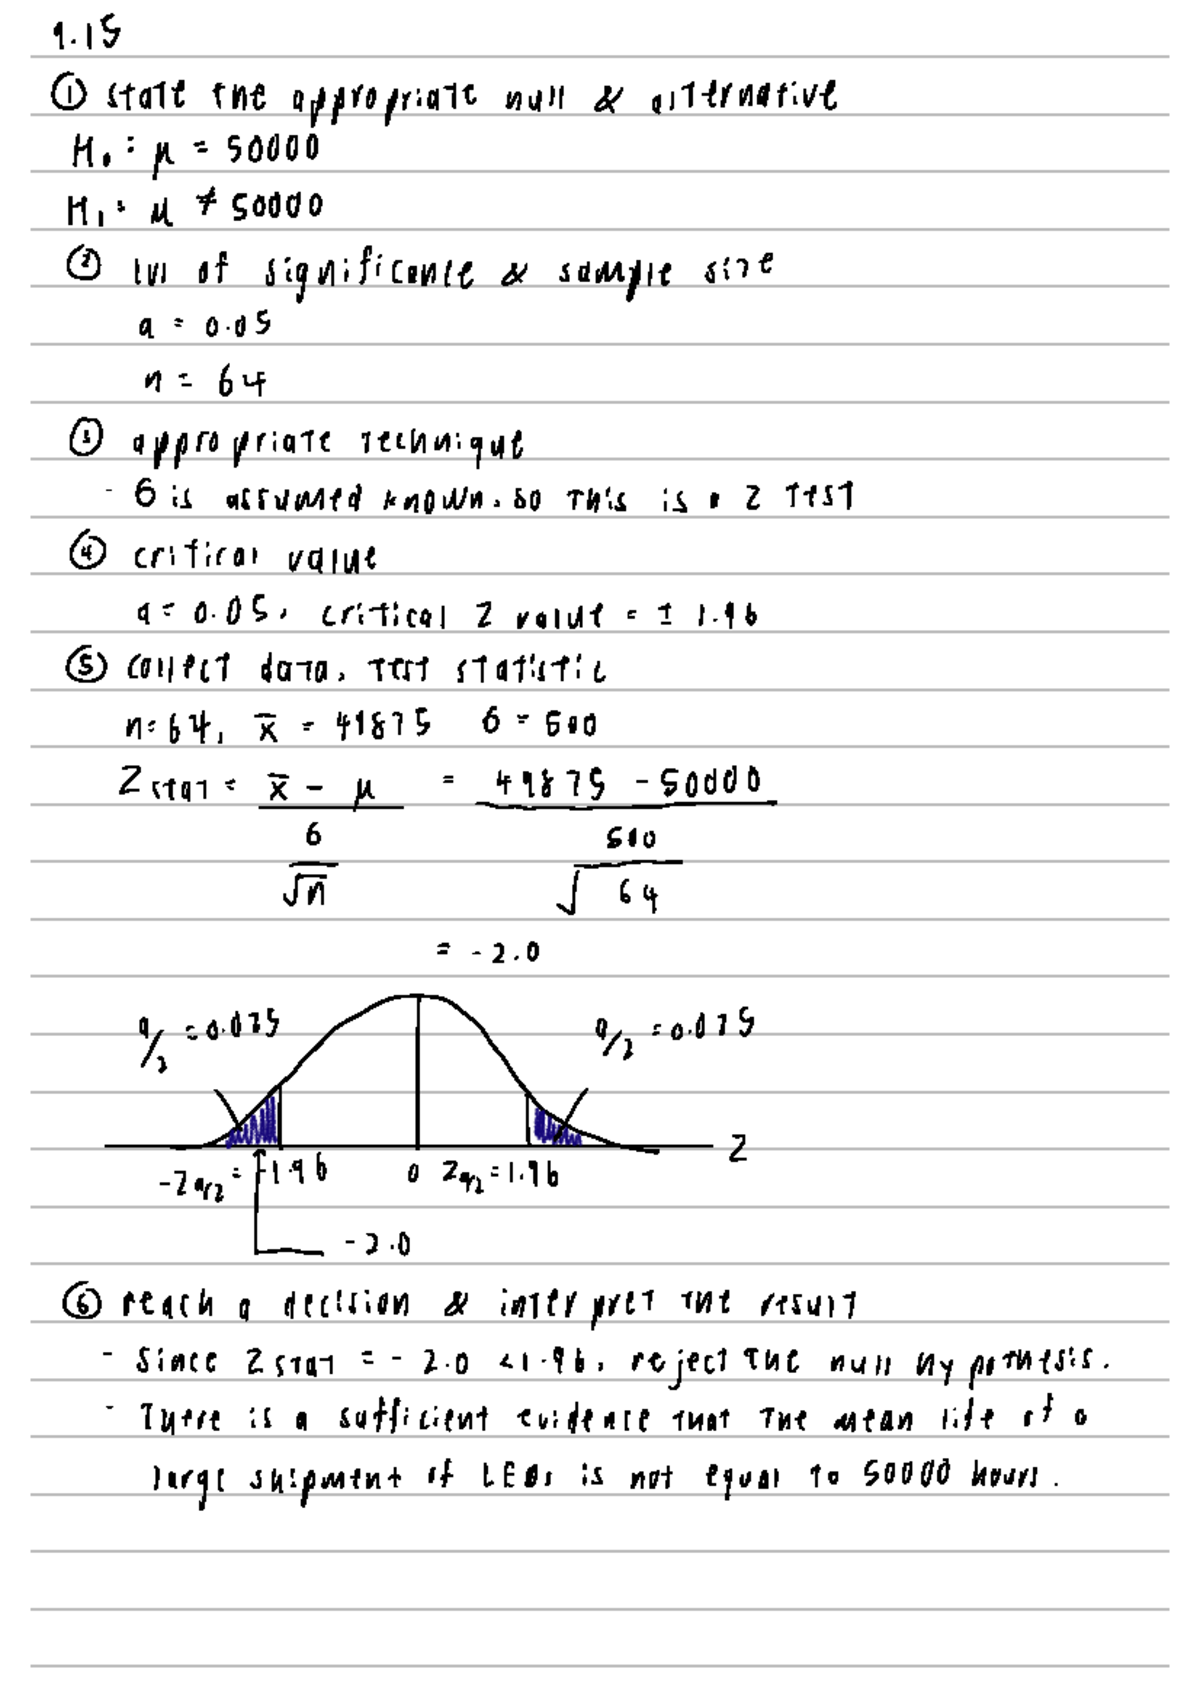 9.15
① state the appropriate null & alternative
H₀ : μ = 50000
H₁ : μ ≠ 50000
② lvl of significance & sample size
a = 0.05
n = 64
③ appropriate technique
- 6 is assumed known. so this is a Z test
④ critical value
a = 0.05, critical Z value = ± 1.96
⑤ collect data, test statistic
n = 64, x̄ = 49875 6 = 500
Z stat = x̄ - μ = 49875 - 50000
6 500
√n √64
= -2.0
a/2 = 0.025 a/2 = 0.025
-Z a/2 = -1.96 0 Z a/2 = 1.96 Z
-2.0
⑥ reach a decision & interpret the result
- Since Z stat = - 2.0 < 1.96, reject the null hypothesis.
- There is a sufficient evidence that the mean life of a
large shipment of LEDs is not equal to 50000 hours.